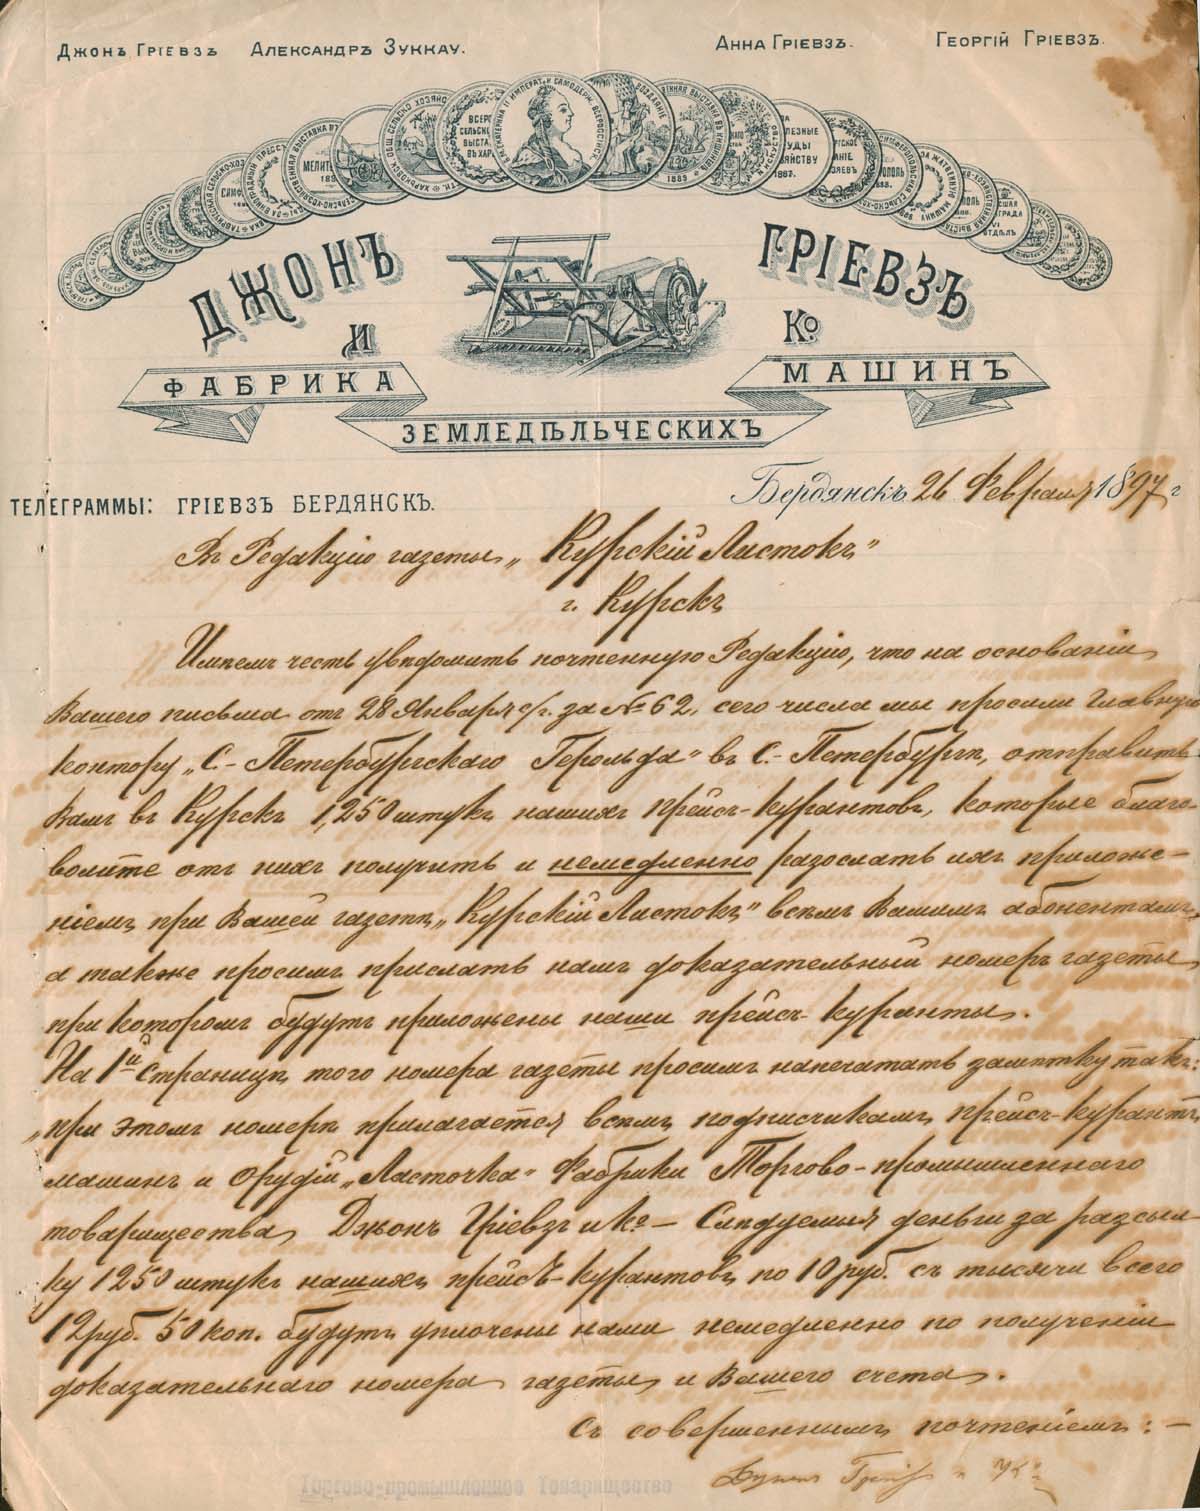 Джонъ Гріевзъ Александръ Зуккау. Анна Гріевзъ. Георгій Гріевзъ.
ДЖОНЪ ГРІЕВЗЪ
И Ко
ФАБРИКА
ЗЕМЛЕДѢЛЬЧЕСКИХЪ
МАШИНЪ
ТЕЛЕГРАММЫ: ГРІЕВЗЪ БЕРДЯНСКЪ.
Бердянскъ 26 Февраля 1897 г
Въ Редакцію газеты „Курскій Листокъ“
г. Курскъ
Имѣемъ честь увѣдомить почтенную Редакцію, что на основаніи
Вашего письма отъ 28 Января с/г. за № 62, сего числа мы просили Главную
контору „С.-Петербургскаго Герольда“ въ С.-Петербургѣ, отправить
Вамъ въ Курскъ 1,250 штукъ нашихъ прейсъ-курантовъ, которые благо-
волите отъ нихъ получить и немедленно разослать ихъ приложе-
ніемъ при Вашей газетѣ „Курскій Листокъ“ всѣмъ Вашимъ абонентамъ,
а также просимъ прислать намъ доказательный номеръ газеты
при которомъ будутъ приложены наши прейсъ-куранты.
На 1й страницѣ того номера газеты просимъ напечатать замѣтку такъ:
„при этомъ номерѣ прилагается всѣмъ подписчикамъ прейсъ-курантъ
машинъ и орудій „Ласточка“ Фабрики Торгово-промышленнаго
товарищества Джонъ Гріевзъ и Ко — Слѣдуемыя деньги за разсыл-
ку 1250 штукъ нашихъ прейсъ-курантовъ по 10 руб. съ тысячи всего
12 руб. 50 коп. будутъ уплочены нами немедленно по полученіи
доказательнаго номера газеты и Вашего счета.
Съ совершеннымъ почтеніемъ: —
Торгово-промышленное Товарищество